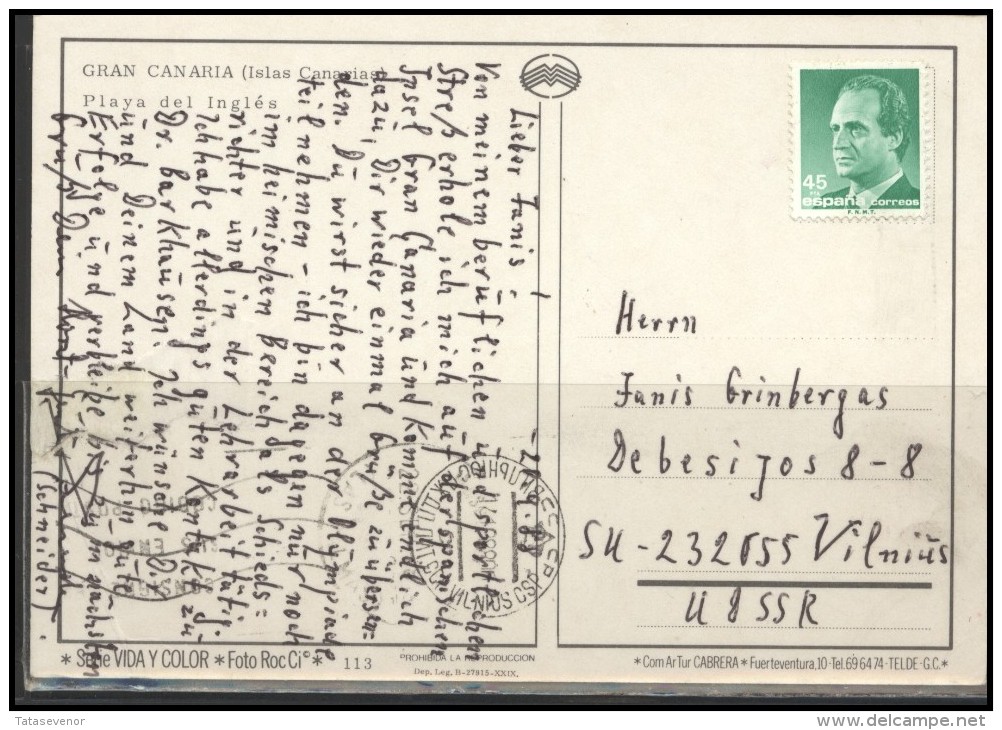 GRAN CANARIA (Islas Canarias)
Playa del Inglés
-2.9.88
Lieber Janis!
Von meinem berüflichen ünd sportlichen
Streß erhole ich mich aüf der spanischen
Insel Gran Canaria ünd komme endlich
dazü, Dir wieder einmal Grüße zü übersen=
den. Dü wirst sicher an der Olümpiade
teilnehmen - ich bin dagegen nür noch
im heimischen Bereich als Schieds=
richter und in der Lehrarbeit tätig.
Ich habe allerdings guten Kontakt zu
Dr. Barkhaüsen. Ich wünsche Dir
ünd Deinem Land weiterhin güte
Erfolge ünd verbleibe bis züm nächsten
Gruß Dein
(Schneider).
45
PTA
españa correos
F.N.M.T.
Herrn
Janis Grinbergas
Debesijos 8-8
SU-232055 Vilniüs
UdSSR
VILNIUS CSP
* Serie VIDA Y COLOR * Foto Roc Ci° * 113
PROHIBIDA LA REPRODUCCION
Dep. Leg. B-27815-XXIX.
* Com Ar Tur CABRERA * Fuerteventura, 10 - Tel. 69 64 74 - TELDE - G.C. *
Tatasevenor
delcampe.net